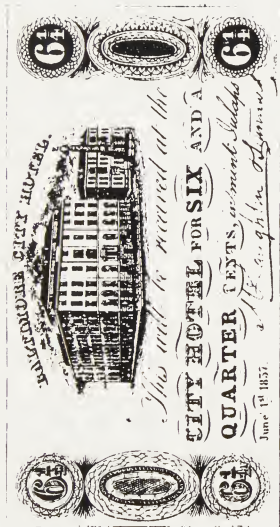 6¼ 6¼
BALTIMORE CITY HOTEL.
This will be received at the
CITY HOTEL FOR SIX AND A
QUARTER CENTS, in
June 1st 1837.
6¼ 6¼